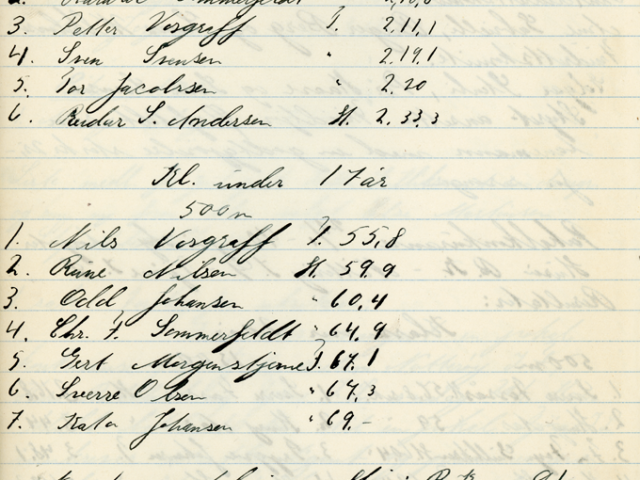 3. Petter Vorgraff J. 2.11,1
4. Sven Svensen " 2.19.1
5. Tor Jacobsen " 2.20
6. Reidar S. Andersen H. 2.33,3
Kl. under 17 år
500 m
1. Nils Vorgraff J. 55,8
2. Rune Nilsen H. 59.9
3. Odd Johansen " 60,4
4. Chr. F. Sommerfeldt " 64,9
5. Gert Morgenstjerne J. 67.1
6. Sverre Olsen " 67,3
7. Johansen " 69.-